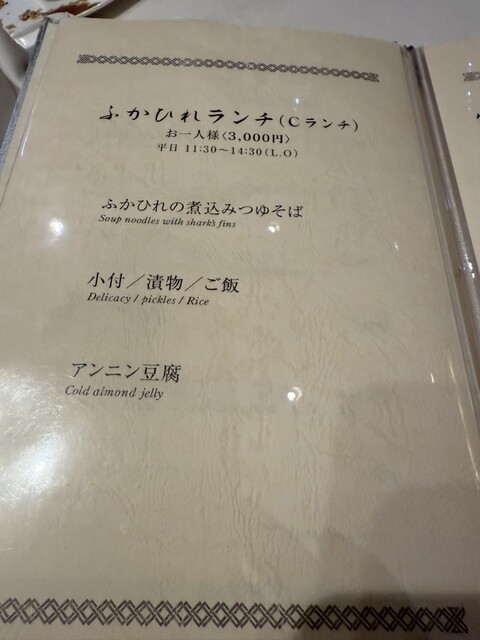 ふかひれランチ(Cランチ)
お一人様〈3,000円〉
平日 11:30～14:30(L.O)
ふかひれの煮込みつゆそば
Soup noodles with shark's fins
小付／漬物／ご飯
Delicacy / pickles / Rice
アンニン豆腐
Cold almond jelly